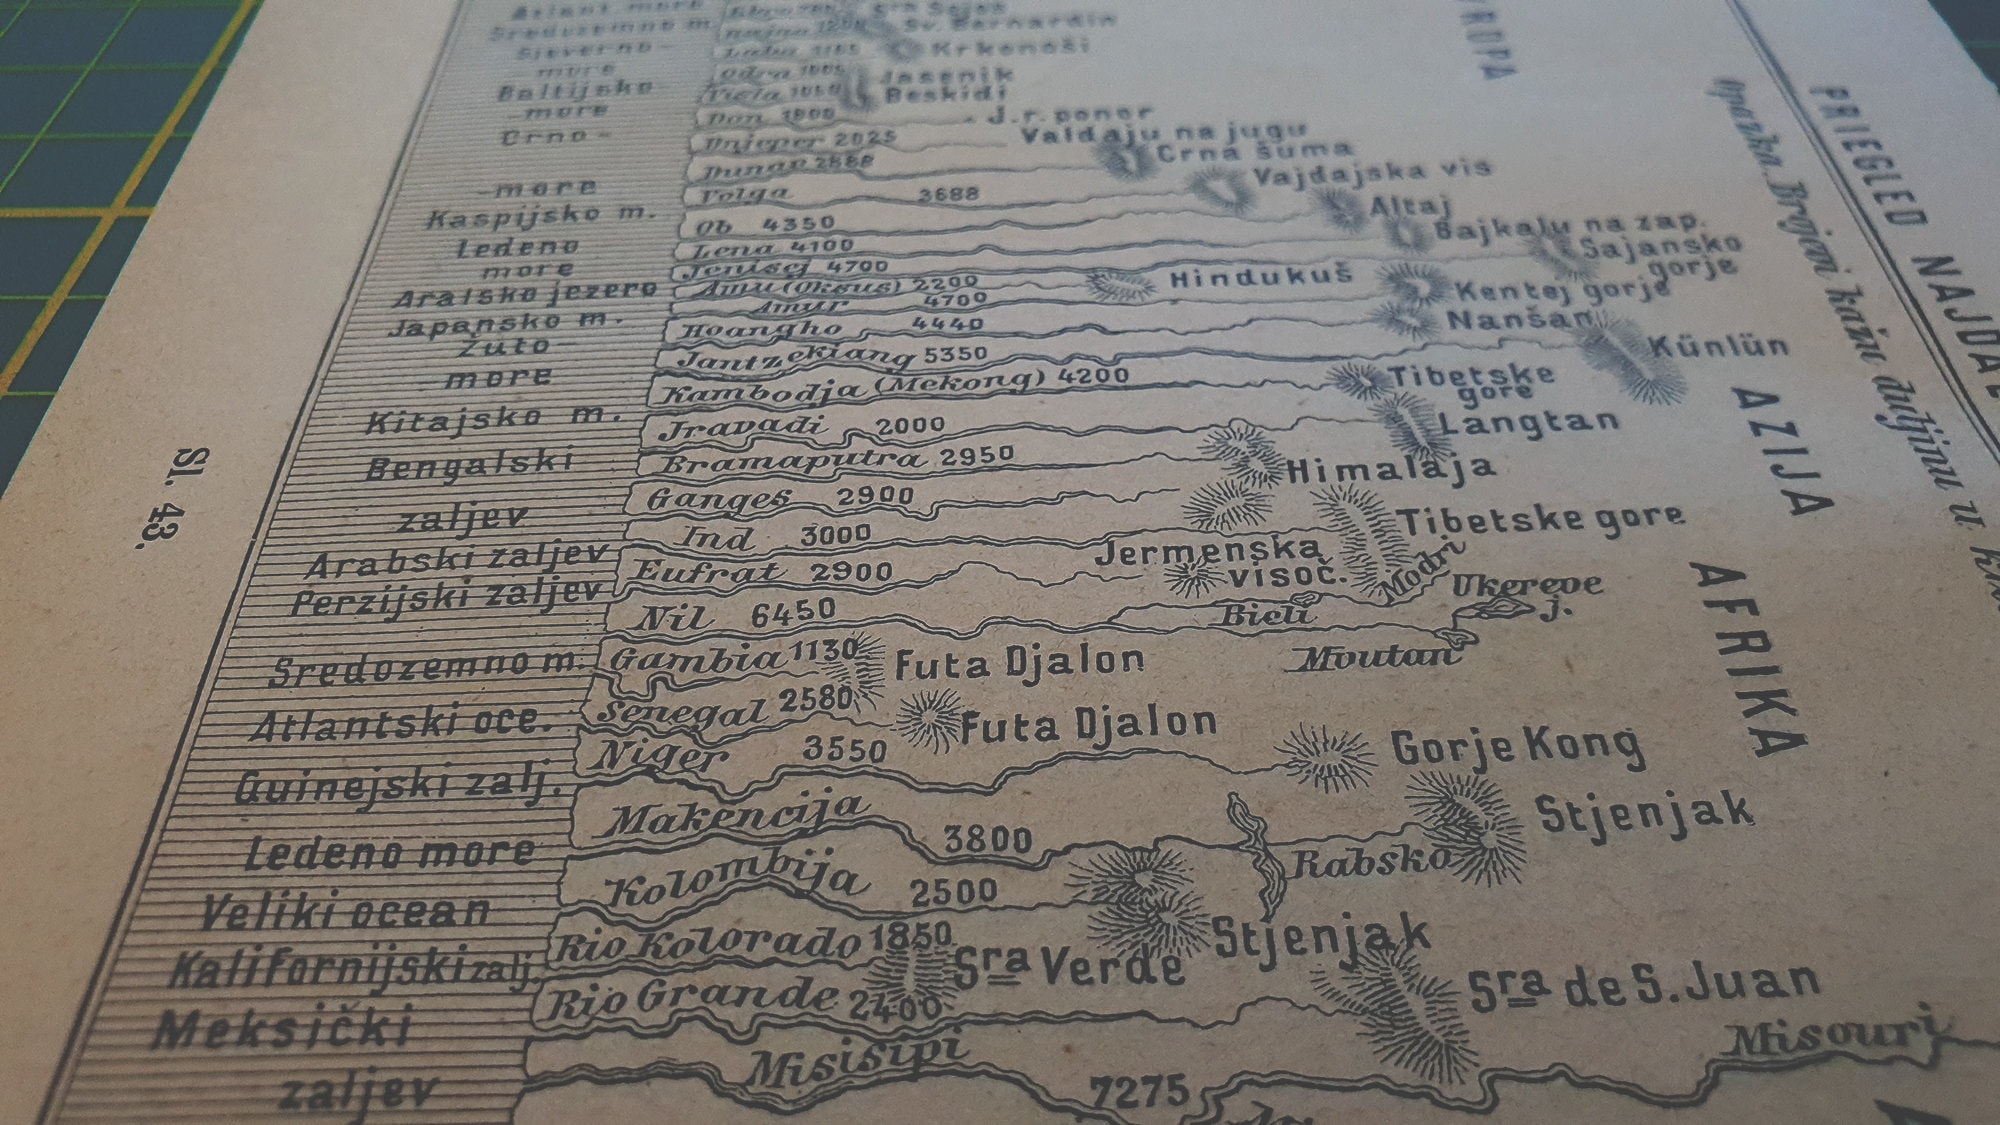 PRIEGLED NAJDAL
Opazka. Brojevi kažu duljinu u
Sl. 43.
EVROPA
AZIJA
AFRIKA
Atlant. more
Sredozemno m.
Sjeverno-
more
Baltijsko-
-more
Crno-
-more
Kaspijsko m.
Ledeno
more
Aralsko jezero
Japansko m.
Žuto-
-more
Kitajsko m.
Bengalski
zaljev
Arabski zaljev
Perzijski zaljev
Sredozemno m.
Atlantski oce.
Guinejski zalj.
Ledeno more
Veliki ocean
Kalifornijski zalj.
Meksički
zaljev
Sv. Bernardin
Krkonoši
Odra
Jasenik
Visla
Beskidi
Don 1800 J. r. ponor
Dnjeper 2025 Valdaju na jugu
Dunav 2888 Crna šuma
Volga 3688 Vajdajska vis
Ob 4350 Altaj
Lena 4100 Bajkalu na zap.
Jenisej 4700 Sajansko
gorje
Amu (Oksus) 2200 Hindukuš
Amur 4700 Kentej gorje
Hoangho 4440 Nanšan
Jantzekiang 5350 Künlün
Kambodja (Mekong) 4200 Tibetske
gore
Jravadi 2000 Langtan
Bramaputra 2950 Himalaja
Ganges 2900
Ind 3000 Tibetske gore
Eufrat 2900 Jermenska
visoč.
Nil 6450 Bieli Modri Ukereve
j.
Moutan
Gambia 1130 Futa Djalon
Senegal 2580 Futa Djalon
Niger 3550 Gorje Kong
Makencija 3800 Rabsko Stjenjak
Kolombija 2500 Stjenjak
Rio Kolorado 1850 Sra Verde
Rio Grande 2400 Sra de S. Juan
Misisipi 7275 Misouri